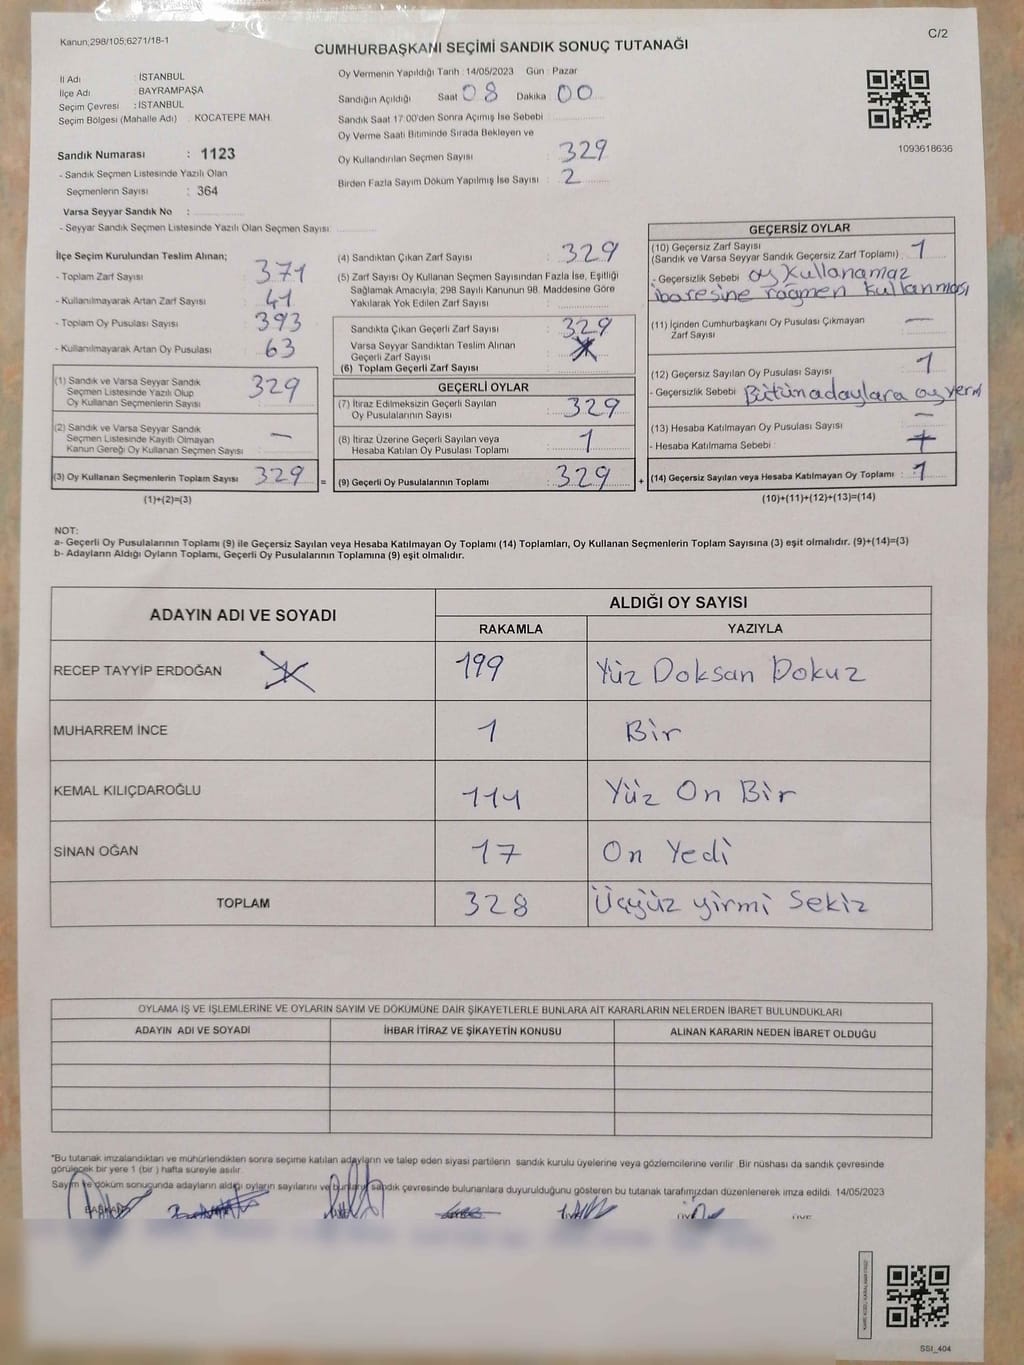 Kanun;298/105;6271/18-1
C/2
CUMHURBAŞKANI SEÇİMİ SANDIK SONUÇ TUTANAĞI
İl Adı : İSTANBUL
İlçe Adı : BAYRAMPAŞA
Seçim Çevresi : İSTANBUL
Seçim Bölgesi (Mahalle Adı) : KOCATEPE MAH.
Sandık Numarası : 1123
- Sandık Seçmen Listesinde Yazılı Olan
Seçmenlerin Sayısı : 364
Varsa Seyyar Sandık No :
- Seyyar Sandık Seçmen Listesinde Yazılı Olan Seçmen Sayısı:
Oy Vermenin Yapıldığı Tarih :14/05/2023 Gün : Pazar
Sandığın Açıldığı Saat 08 Dakika 00
Sandık Saat 17:00'den Sonra Açımış İse Sebebi :
Oy Verme Saati Bitiminde Sırada Bekleyen ve
Oy Kullandırılan Seçmen Sayısı : 329
Birden Fazla Sayım Döküm Yapılmış İse Sayısı : 2
1093618636
İlçe Seçim Kurulundan Teslim Alınan;
- Toplam Zarf Sayısı : 371
- Kullanılmayarak Artan Zarf Sayısı : 41
- Toplam Oy Pusulası Sayısı : 393
- Kullanılmayarak Artan Oy Pusulası : 63
(1) Sandık ve Varsa Seyyar Sandık
Seçmen Listesinde Yazılı Olup
Oy Kullanan Seçmenlerin Sayısı : 329
(2) Sandık ve Varsa Seyyar Sandık
Seçmen Listesinde Kayıtlı Olmayan
Kanun Gereği Oy Kullanan Seçmen Sayısı : —
(3) Oy Kullanan Seçmenlerin Toplam Sayısı : 329
(1)+(2)=(3)
=
(4) Sandıktan Çıkan Zarf Sayısı : 329
(5) Zarf Sayısı Oy Kullanan Seçmen Sayısından Fazla İse, Eşitliği
Sağlamak Amacıyla, 298 Sayılı Kanunun 98. Maddesine Göre
Yakılarak Yok Edilen Zarf Sayısı :
Sandıkta Çıkan Geçerli Zarf Sayısı : 329
Varsa Seyyar Sandıktan Teslim Alınan
Geçerli Zarf Sayısı :
(6) Toplam Geçerli Zarf Sayısı :
GEÇERLİ OYLAR
(7) İtiraz Edilmeksizin Geçerli Sayılan
Oy Pusulalarının Sayısı : 329
(8) İtiraz Üzerine Geçerli Sayılan veya
Hesaba Katılan Oy Pusulası Toplamı : 1
(9) Geçerli Oy Pusulalarının Toplamı : 329
+
GEÇERSİZ OYLAR
(10) Geçersiz Zarf Sayısı
(Sandık ve Varsa Seyyar Sandık Geçersiz Zarf Toplamı) : 1
- Geçersizlik Sebebi : oy kullanamaz
ibaresine rağmen kullanması
(11) İçinden Cumhurbaşkanı Oy Pusulası Çıkmayan
Zarf Sayısı : —
(12) Geçersiz Sayılan Oy Pusulası Sayısı : 1
- Geçersizlik Sebebi : Bütün adaylara oy verm
(13) Hesaba Katılmayan Oy Pusulası Sayısı : —
- Hesaba Katılmama Sebebi :
(14) Geçersiz Sayılan veya Hesaba Katılmayan Oy Toplamı : 1
(10)+(11)+(12)+(13)=(14)
NOT:
a- Geçerli Oy Pusulalarının Toplamı (9) ile Geçersiz Sayılan veya Hesaba Katılmayan Oy Toplamı (14) Toplamları, Oy Kullanan Seçmenlerin Toplam Sayısına (3) eşit olmalıdır. (9)+(14)=(3)
b- Adayların Aldığı Oyların Toplamı, Geçerli Oy Pusulalarının Toplamına (9) eşit olmalıdır.
ADAYIN ADI VE SOYADI
ALDIĞI OY SAYISI
RAKAMLA YAZIYLA
RECEP TAYYİP ERDOĞAN 199 Yüz Doksan Dokuz
MUHARREM İNCE 1 Bir
KEMAL KILIÇDAROĞLU 111 Yüz On Bir
SİNAN OĞAN 17 On Yedi
TOPLAM 328 Üçyüz yirmi Sekiz
OYLAMA İŞ VE İŞLEMLERİNE VE OYLARIN SAYIM VE DÖKÜMÜNE DAİR ŞİKAYETLERLE BUNLARA AİT KARARLARIN NELERDEN İBARET BULUNDUKLARI
ADAYIN ADI VE SOYADI İHBAR İTİRAZ VE ŞİKAYETİN KONUSU ALINAN KARARIN NEDEN İBARET OLDUĞU
*Bu tutanak imzalandıktan ve mühürlendikten sonra seçime katılan adayların ve talep eden siyasi partilerin sandık kurulu üyelerine veya gözlemcilerine verilir. Bir nüshası da sandık çevresinde
görülecek bir yere 1 (bir ) hafta süreyle asılır.
Sayım ve döküm sonucunda adayların aldığı oyların sayılarını ve bunların sandık çevresinde bulunanlara duyurulduğunu gösteren bu tutanak tarafımızdan düzenlenerek imza edildi. 14/05/2023
BAŞKAN
ÜYE
SSI_404